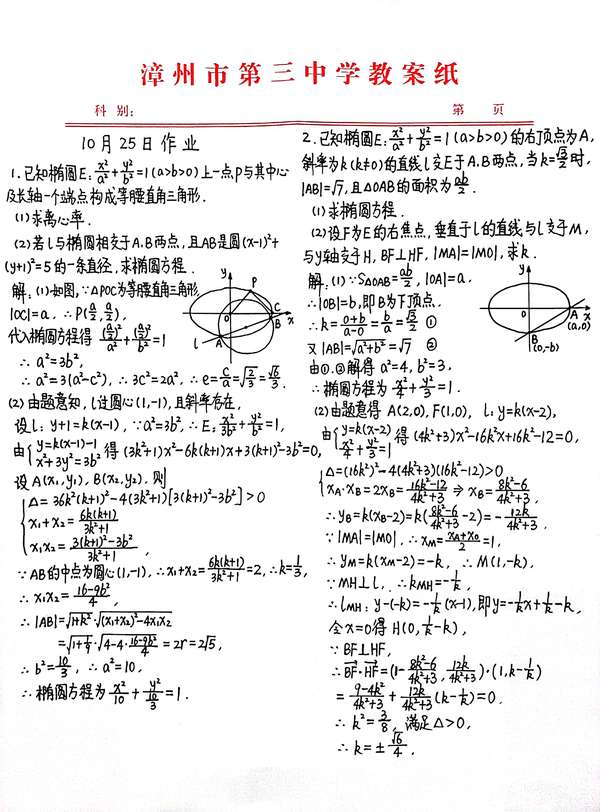 漳州市第三中学教案纸
科 别:
第 页
10月25日作业
1.已知椭圆E: x²/a²+y²/b²=1(a>b>0)上一点P与其中心
及长轴一个端点构成等腰直角三角形.
(1)求离心率.
(2)若l与椭圆相交于A.B两点,且AB是圆(x-1)²+
(y+1)²=5的一条直径,求椭圆方程.
解:(1)如图,∵△POC为等腰直角三角形,
|OC|=a. ∴P(a/2,a/2),
代入椭圆方程得 (a/2)²/a²+(a/2)²/b²=1
∴a²=3b²,
∴a²=3(a²-c²), ∴3c²=2a², ∴e=c/a=√(2/3)=√6/3.
y
P
O
C
x
A
B
l
(2)由题意知,l过圆心(1,-1),且斜率存在,
设l: y+1=k(x-1), ∵a²=3b², ∴E: x²/3b²+y²/b²=1,
由{y=k(x-1)-1
x²+3y²=3b² 得(3k²+1)x²-6k(k+1)x+3(k+1)²-3b²=0,
设A(x₁,y₁), B(x₂,y₂).则
{△=36k²(k+1)²-4(3k²+1)[3(k+1)²-3b²]>0
x₁+x₂=6k(k+1)/3k²+1
x₁x₂=3(k+1)²-3b²/3k²+1,
∵AB的中点为圆心(1,-1), ∴x₁+x₂=6k(k+1)/3k²+1=2, ∴k=1/3,
∴x₁x₂=16-9b²/4,
∴|AB|=√1+k²·√(x₁+x₂)²-4x₁x₂
=√1+1/9·√4-4·16-9b²/4=2r=2√5,
∴b²=10/3, ∴a²=10,
∴椭圆方程为x²/10+y²/(10/3)=1.
2.已知椭圆E: x²/a²+y²/b²=1(a>b>0)的右顶点为A,
斜率为k(k≠0)的直线l交E于A.B两点,当k=√3/2时,
|AB|=√7,且△OAB的面积为ab/2.
(1)求椭圆方程.
(2)设F为E的右焦点,垂直于l的直线与l交于M,
与y轴交于H, BF⊥HF, |MA|=|MO|, 求k.
解:(1)∵S△OAB=ab/2, |OA|=a,
∴|OB|=b,即B为下顶点.
∴k=0+b/a-0=b/a=√3/2 ①
又|AB|=√a²+b²=√7 ②
由①.②解得a²=4, b²=3,
∴椭圆方程为x²/4+y²/3=1.
y
O
A
x
(a,0)
B
(0,-b)
(2)由题意得A(2,0),F(1,0), l: y=k(x-2),
由{y=k(x-2)
x²/4+y²/3=1 得(4k²+3)x²-16k²x+16k²-12=0,
{△=(16k²)²-4(4k²+3)(16k²-12)>0
xA·xB=2xB=16k²-12/4k²+3⇒xB=8k²-6/4k²+3,
∴yB=k(xB-2)=k(8k²-6/4k²+3-2)=-12k/4k²+3,
∵|MA|=|MO|, ∴xM=xA+xO/2=1,
∴yM=k(xM-2)=-k, ∴M(1,-k),
∵MH⊥l, ∴kMH=-1/k,
∴lMH: y-(-k)=-1/k(x-1),即y=-1/k x+1/k-k,
令x=0得H(0,1/k-k),
∵BF⊥HF,
∴BF·HF=(1-8k²-6/4k²+3, 12k/4k²+3)·(1,k-1/k)
=9-4k²/4k²+3+12k/4k²+3(k-1/k)=0.
∴k²=3/8, 满足△>0,
∴k=±√6/4.